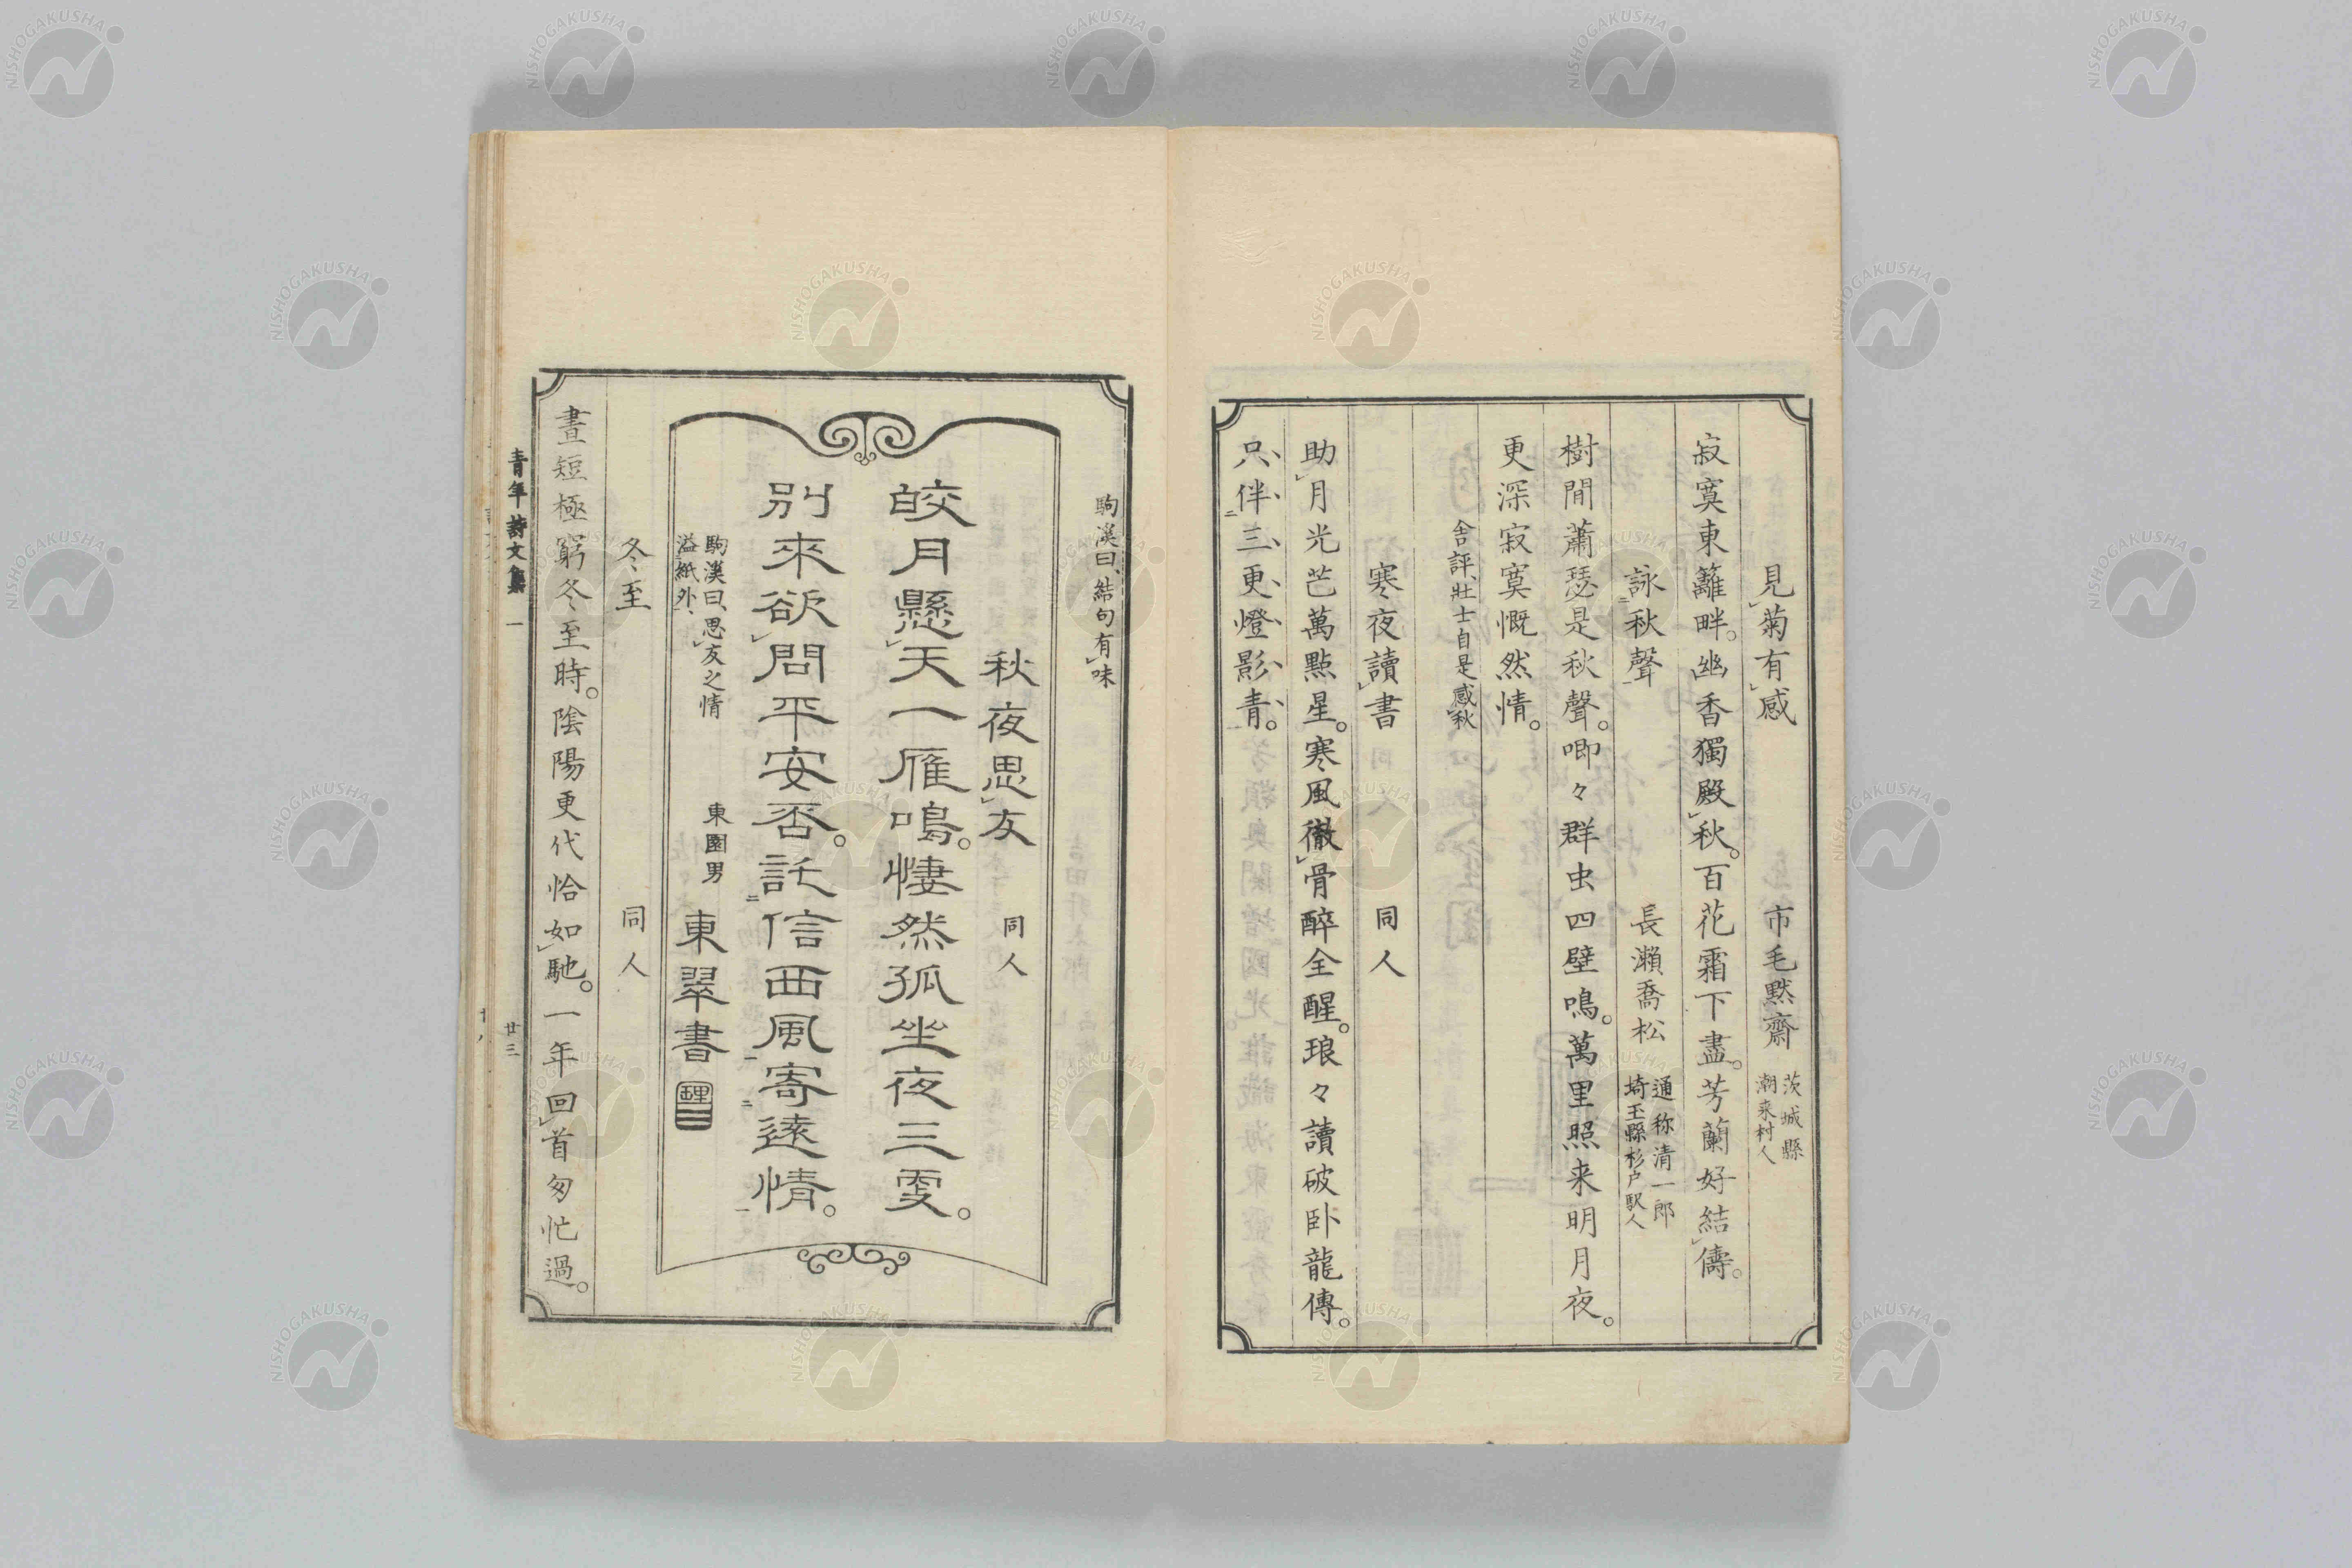 見菊有感 市毛黙齋 茨城縣潮来村人
寂寞東籬畔。幽香獨殿秋。百花霜下盡。芳蘭好結儔。
詠秋聲 長瀬喬松 通称清一郎埼玉縣杉戸駅人
樹間蕭瑟是秋聲。喞々群虫四壁鳴。萬里照来明月夜。
更深寂寞慨然情。
舍評、壮士自是感秋
寒夜讀書 同人
助月光芒萬點星。寒風徹骨醉全醒。琅々讀破卧龍傳。
只伴三更燈影青。
駒溪曰、結句有味
秋夜思友 同人
皎月懸天一雁鳴。悽然孤坐夜三更。
別來欲問平安否。託信西風寄遠情。
駒溪曰、思友之情
溢紙外、
東園男 東翠書
冬至 同人
晝短極窮冬至時。陰陽更代恰如馳。一年回首匆忙過。
青年詩文集 一 廿三
NISHOGAKUSHA